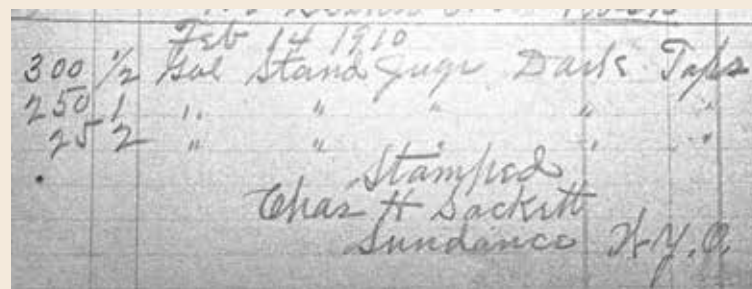 Feb 14 1910
300 1/2 Gal Stand Jugs Dark Tops
250 1 " " " " "
25 2 " " " "
Stamped
Chas H Sackett
Sundance W.Y.O.